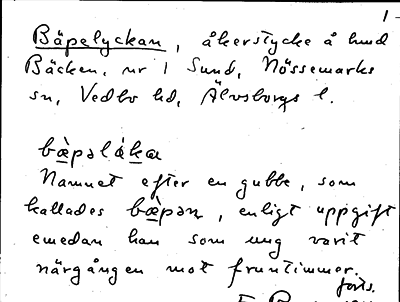 1
Bäpelyckan, åkerstycke å hmd
Bäcken, nr 1 Sund, Nössemarks
sn, Vedbo hd, Älvsborgs l.
bæ̀pəlák̲a
Namnet efter en gubbe, som
kallades bæ̀pən, enligt uppgift
emedan han som ung varit
närgången mot fruntimmer.
forts.